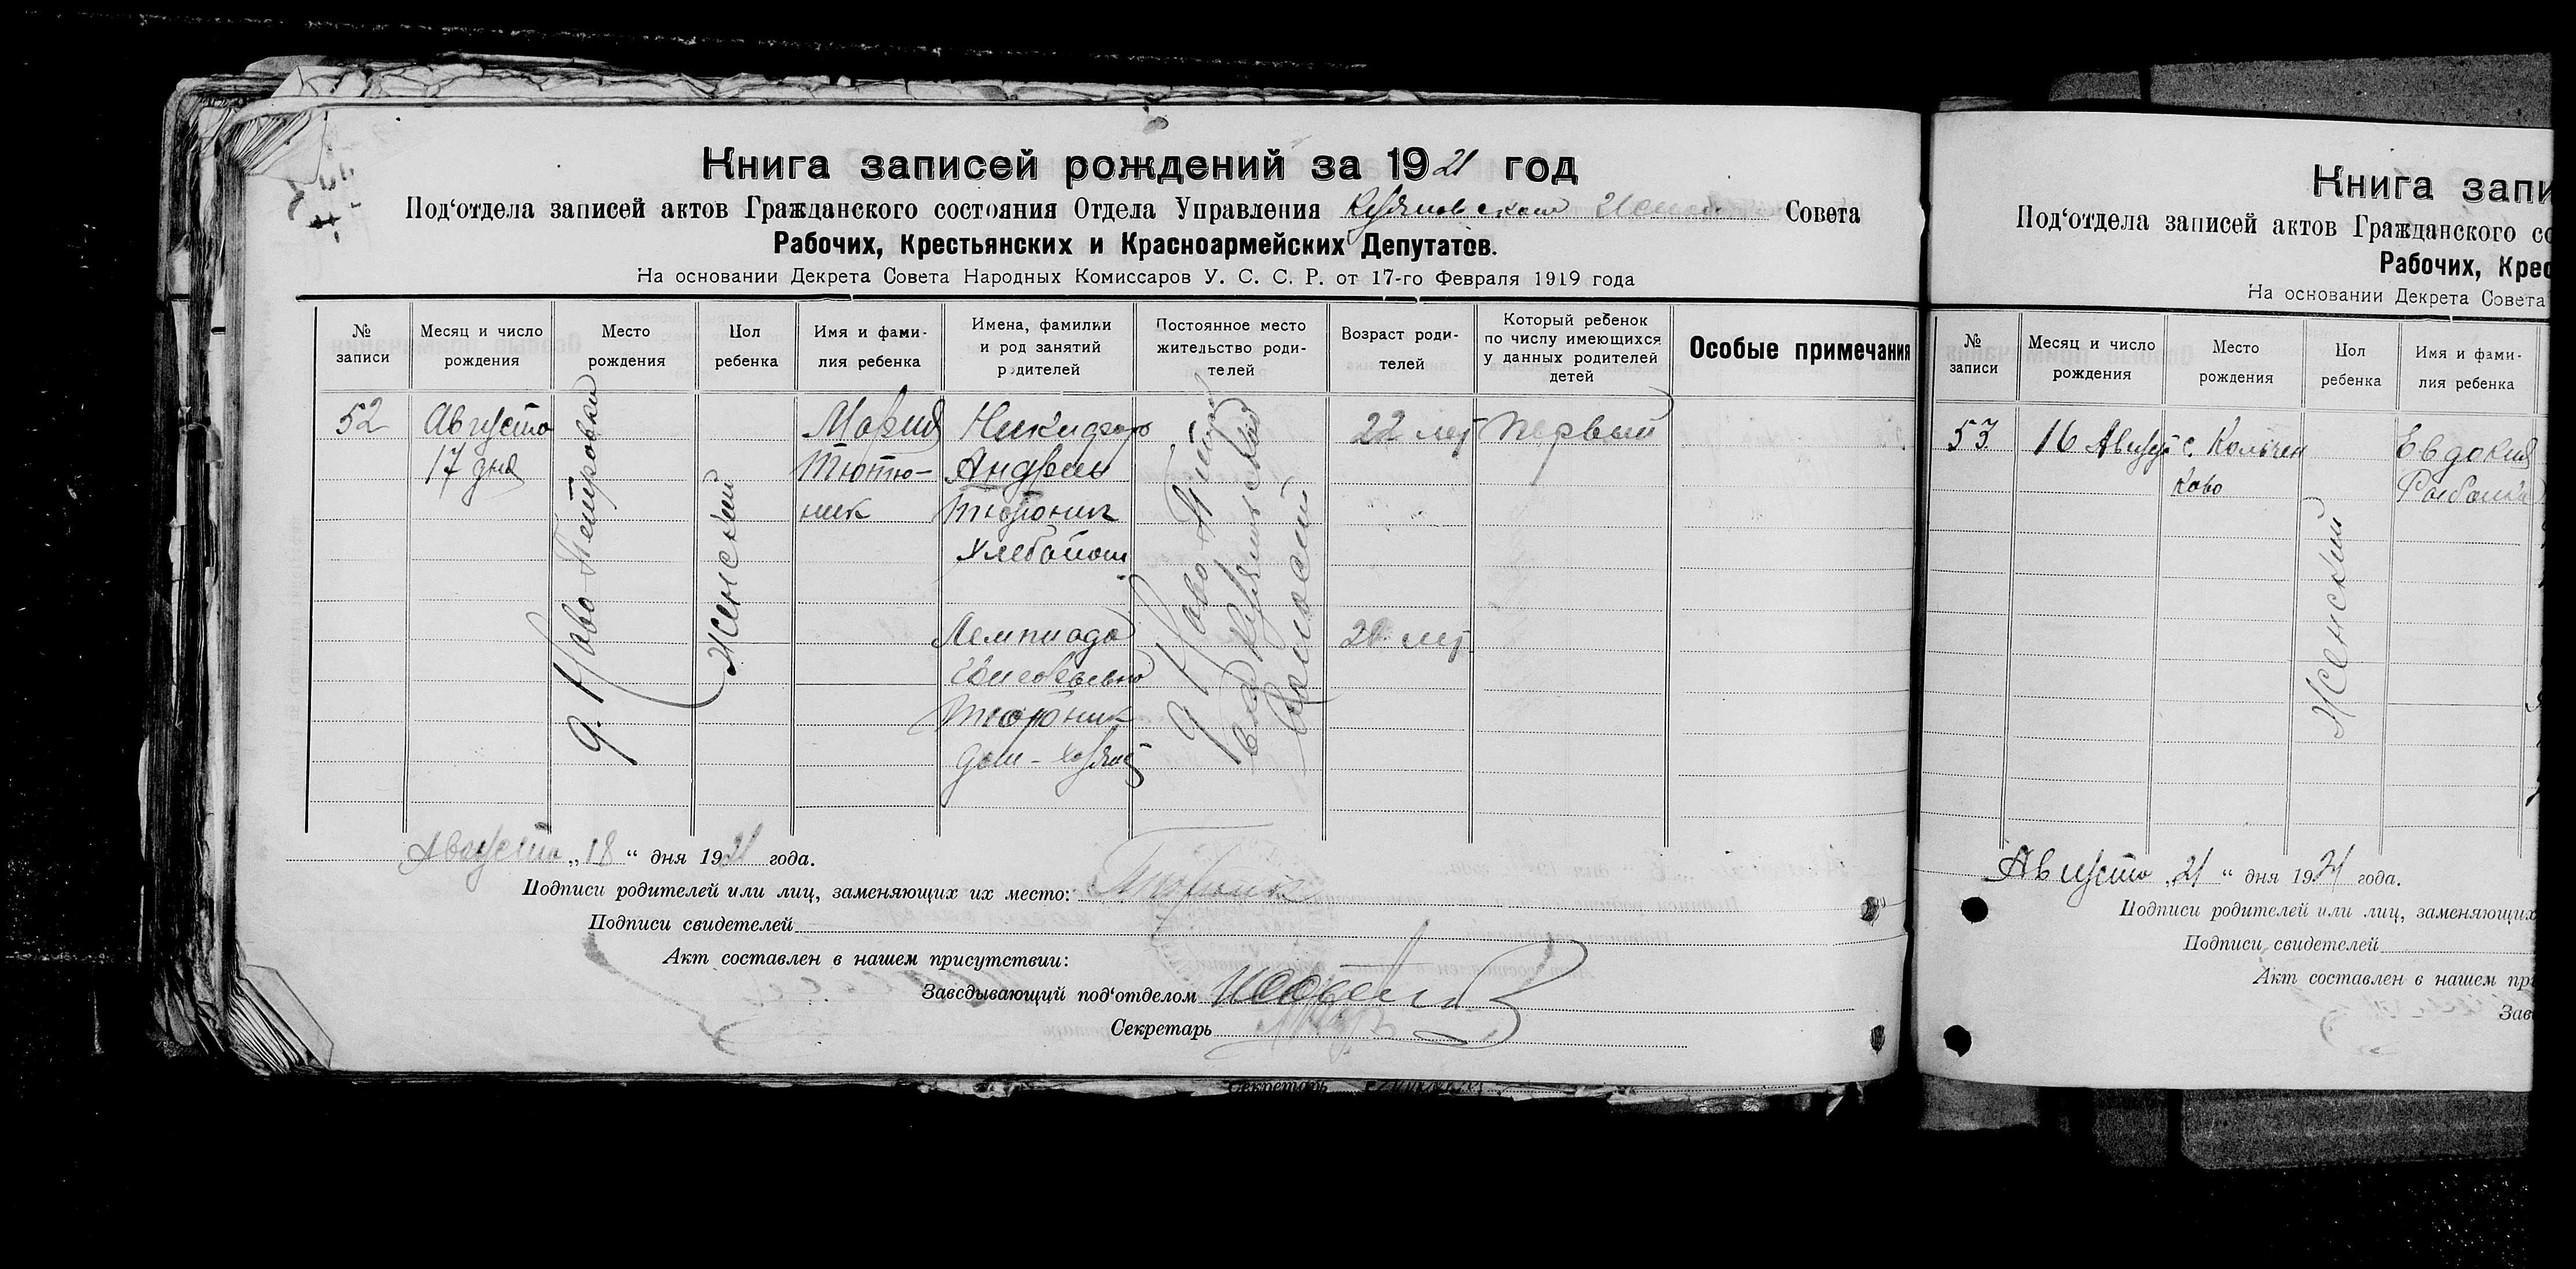 Книга записей рождений за 1921 год
Под‘отдела записей актов Гражданского состояния Отдела Управления Совета
Рабочих, Крестьянских и Красноармейских Депутатов.
На основании Декрета Совета Народных Комиссаров У. С. С. Р. от 17-го Февраля 1919 года
№ записи
Месяц и число рождения
Место рождения
Пол ребенка
Имя и фами-
лия ребенка
Имена, фамилии
и род занятий
родителей
Постоянное место
жительство роди-
телей
Возраст роди-
телей
Который ребенок
по числу имеющихся
у данных родителей
детей
Особые примечания
52
Августа
17 дня
д. Ново Петровка
Женский
Мария
Тютю-
ник
Никифор
Андреев
Тютюник
Хлебопаш
Лемпиада
Тютюник
дом-хозяй
д. Ново
волости
22 лет
первый
Августа „18“ дня 1921 года.
Подписи родителей или лиц, заменяющих их место:
Подписи свидетелей
Акт составлен в нашем присутствии:
Заведывающий под‘отделом
Секретарь
Секретарь
Книга запи
Под‘отдела записей актов Гражданского со
Рабочих, Крес
На основании Декрета Совета
№ записи
Месяц и число рождения
Место рождения
Пол ребенка
Имя и фами-
лия ребенка
53
16 Август
с. Кольчен
ково
Женский
Евдокия
Августа „21“ дня 1921 года.
Подписи родителей или лиц, заменяющих
Подписи свидетелей
Акт составлен в нашем пр
Зав